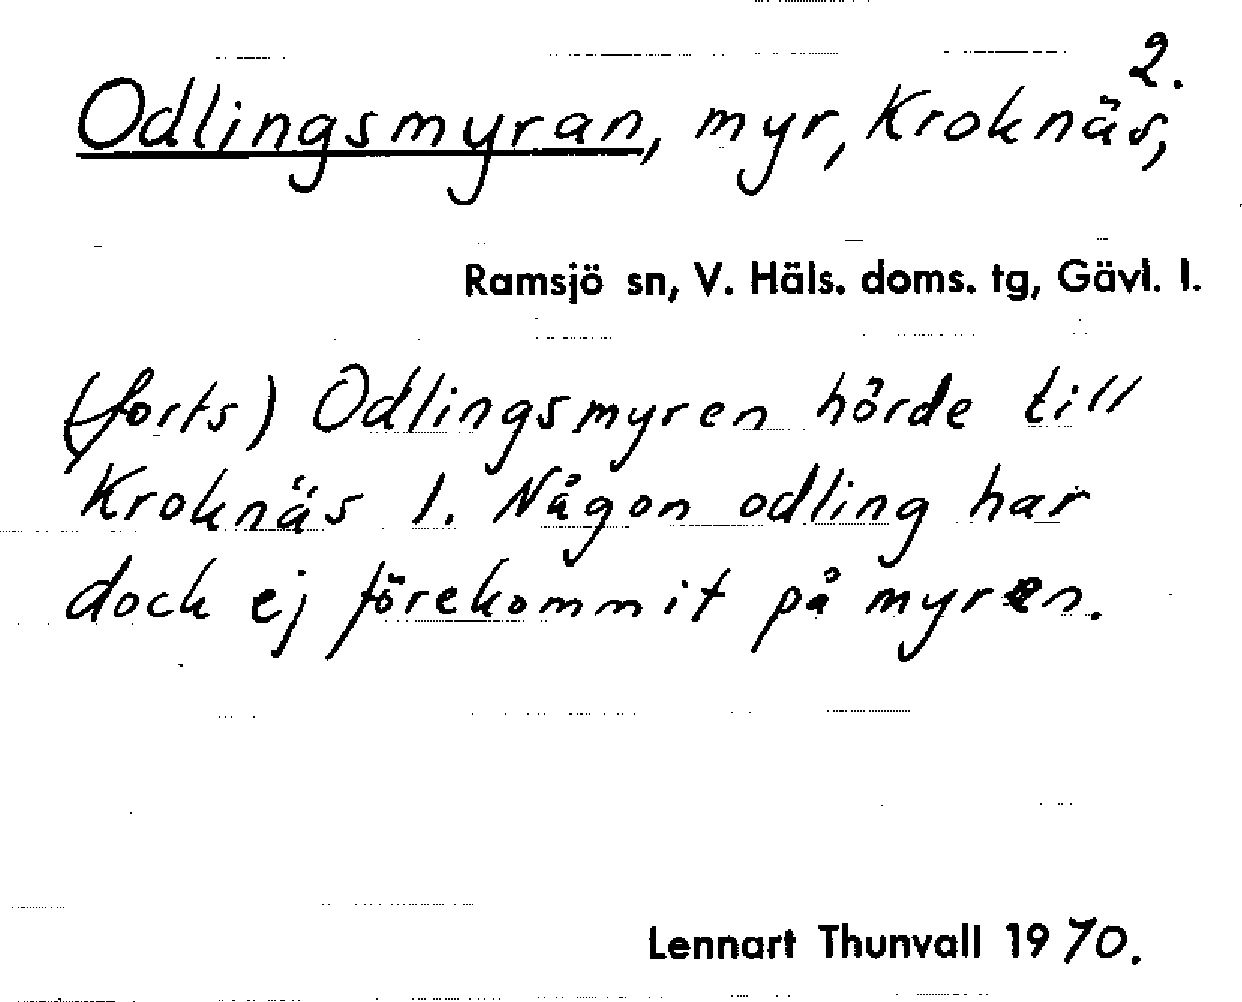 2.
Odlingsmyran, myr, Kroknäs,
Ramsjö sn, V. Häls. doms. tg, Gävl. l.
(forts) Odlingsmyren hörde till
Kroknäs 1. Någon odling har
dock ej förekommit på myren.
Lennart Thunvall 1970.